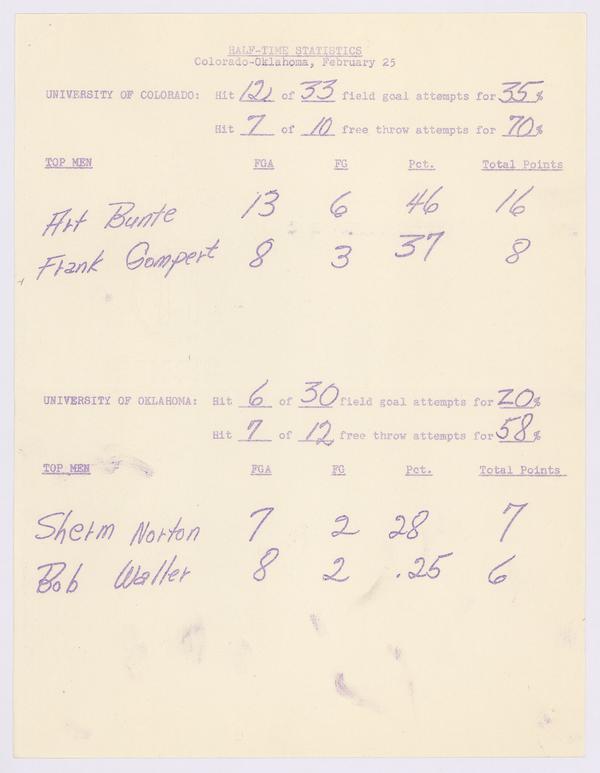 HALF-TIME STATISTICS
Colorado-Oklahoma, February 25
UNIVERSITY OF COLORADO: Hit 12 of 33 field goal attempts for 35%
Hit 7 of 10 free throw attempts for 70%
TOP MEN FGA FG Pct. Total Points
Art Bunte 13 6 46 16
Frank Gompert 8 3 37 8
UNIVERSITY OF OKLAHOMA: Hit 6 of 30 field goal attempts for 20%
Hit 7 of 12 free throw attempts for 58%
TOP MEN FGA FG Pct. Total Points
Sherm Norton 7 2 28 7
Bob Waller 8 2 .25 6